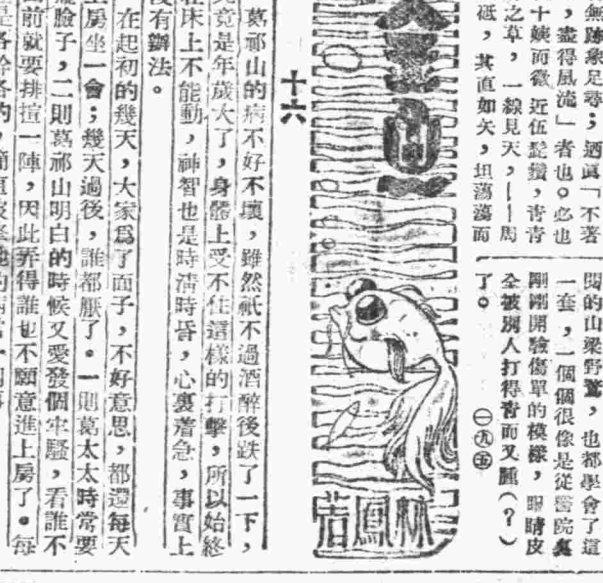 無蹤象足尋；迺眞「不著
，盡得風流」者也。必也
十姨而微，近伍髭鬚，青青
之草，一線見天，——周
砥，其直如矢，坦蕩蕩而
閱的山梁野鶩，也都學會了這
一套，一個個很像是從醫院裏
剛剛開驗傷單的模樣，眼睛皮
全被別人打得靑而又腫（？）
了。
㊀㊈㊄
林鳳若
十六
葛祁山的病不好不壞，雖然祇不過酒醉後跌了一下，
究竟是年歲大了，身體上受不住這樣的打擊，所以始終
在床上不能動，神智也是時淸時昏，心裏着急，事實上
沒有辦法。
在起初的幾天，大家爲了面子，不好意思，都還每天
上房坐一會；幾天過後，誰都厭了。一則葛太太時常要
臉子，二則葛祁山明白的時候又愛發個牢騷，看誰不
前就要排揎一陣，因此弄得誰也不願意進上房了。每